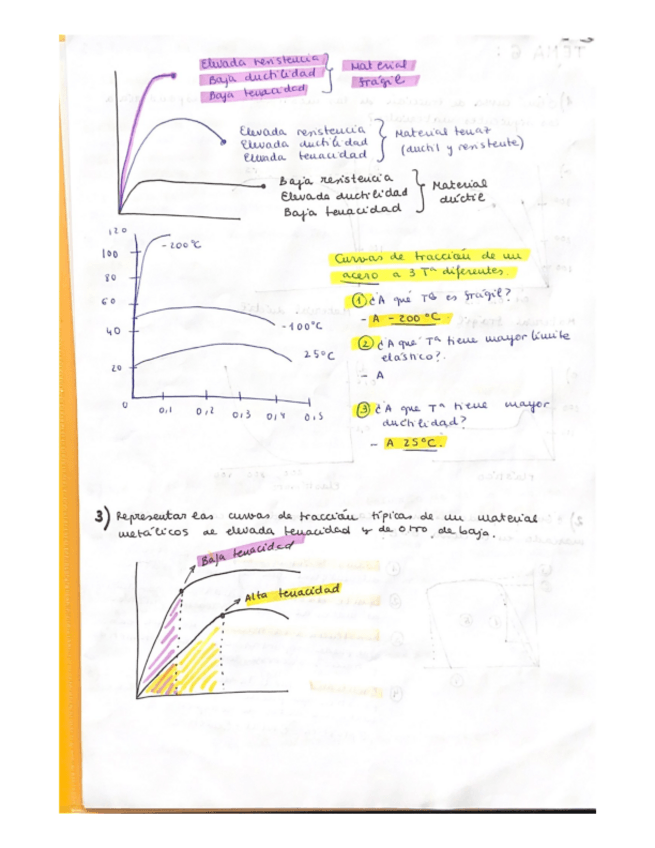 Elevada resistencia
Baja ductilidad
Baja tenacidad
Material
frágil
Elevada resistencia
Elevada ductilidad
Elevada tenacidad
Material tenaz
(ductil y resistente)
Baja resistencia
Elevada ductilidad
Baja tenacidad
Material
dúctil
120
100
80
60
40
20
0
0,1
0,2
0,3
0,4
0,5
-200°C
-100°C
25°C
Curvas de tracción de un
acero a 3 Tª diferentes.
1 ¿A qué Tª es frágil?
- A -200 °C
2 ¿A que Tª tiene mayor límite
elástico?
- A
3 ¿A que Tª tiene mayor
ductilidad?
- A 25°C.
3) Representar las curvas de tracción típicas de un material
metálicos de elevada tenacidad y de otro de baja.
Baja tenacidad
Alta tenacidad